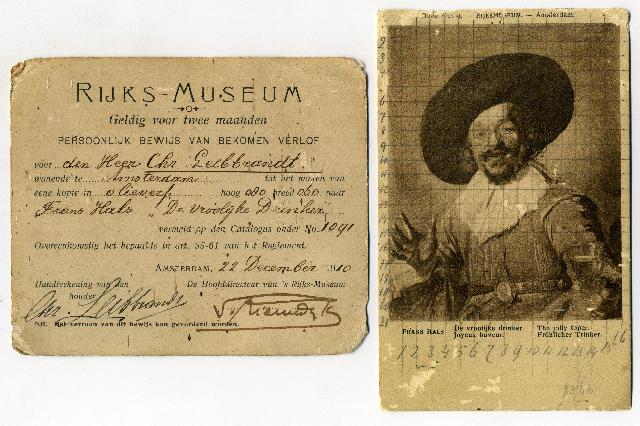 RIJKS-MUSEUM
Geldig voor twee maanden
PERSOONLIJK BEWIJS VAN BEKOMEN VERLOF
voor den Heer Chr. Leibbrandt,
wonende te Amsterdam tot het maken van
eene kopie in olieverf hoog 080 breed 060 naar
Frans Hals "De Vroolijke Drinker"
vermeld op den Catalogus onder No. 1091
Overeenkomstig het bepaalde in art. 55-61 van het Reglement.
AMSTERDAM, 22 December 1910
Handteekening van den houder
De Hoofddirecteur van 's Rijks-Museum
Chr. Leibbrandt
NB. Het vertoon van dit bewijs kan gevorderd worden.
RIJKSMUSEUM. — Amsterdam.
FRANS HALS
De vroolijke drinker.
Joyeux buveur.
The jolly toper.
Fröhlicher Trinker.
1 2 3 4 5 6 7 8 9 10 11 12 13 14 15 16